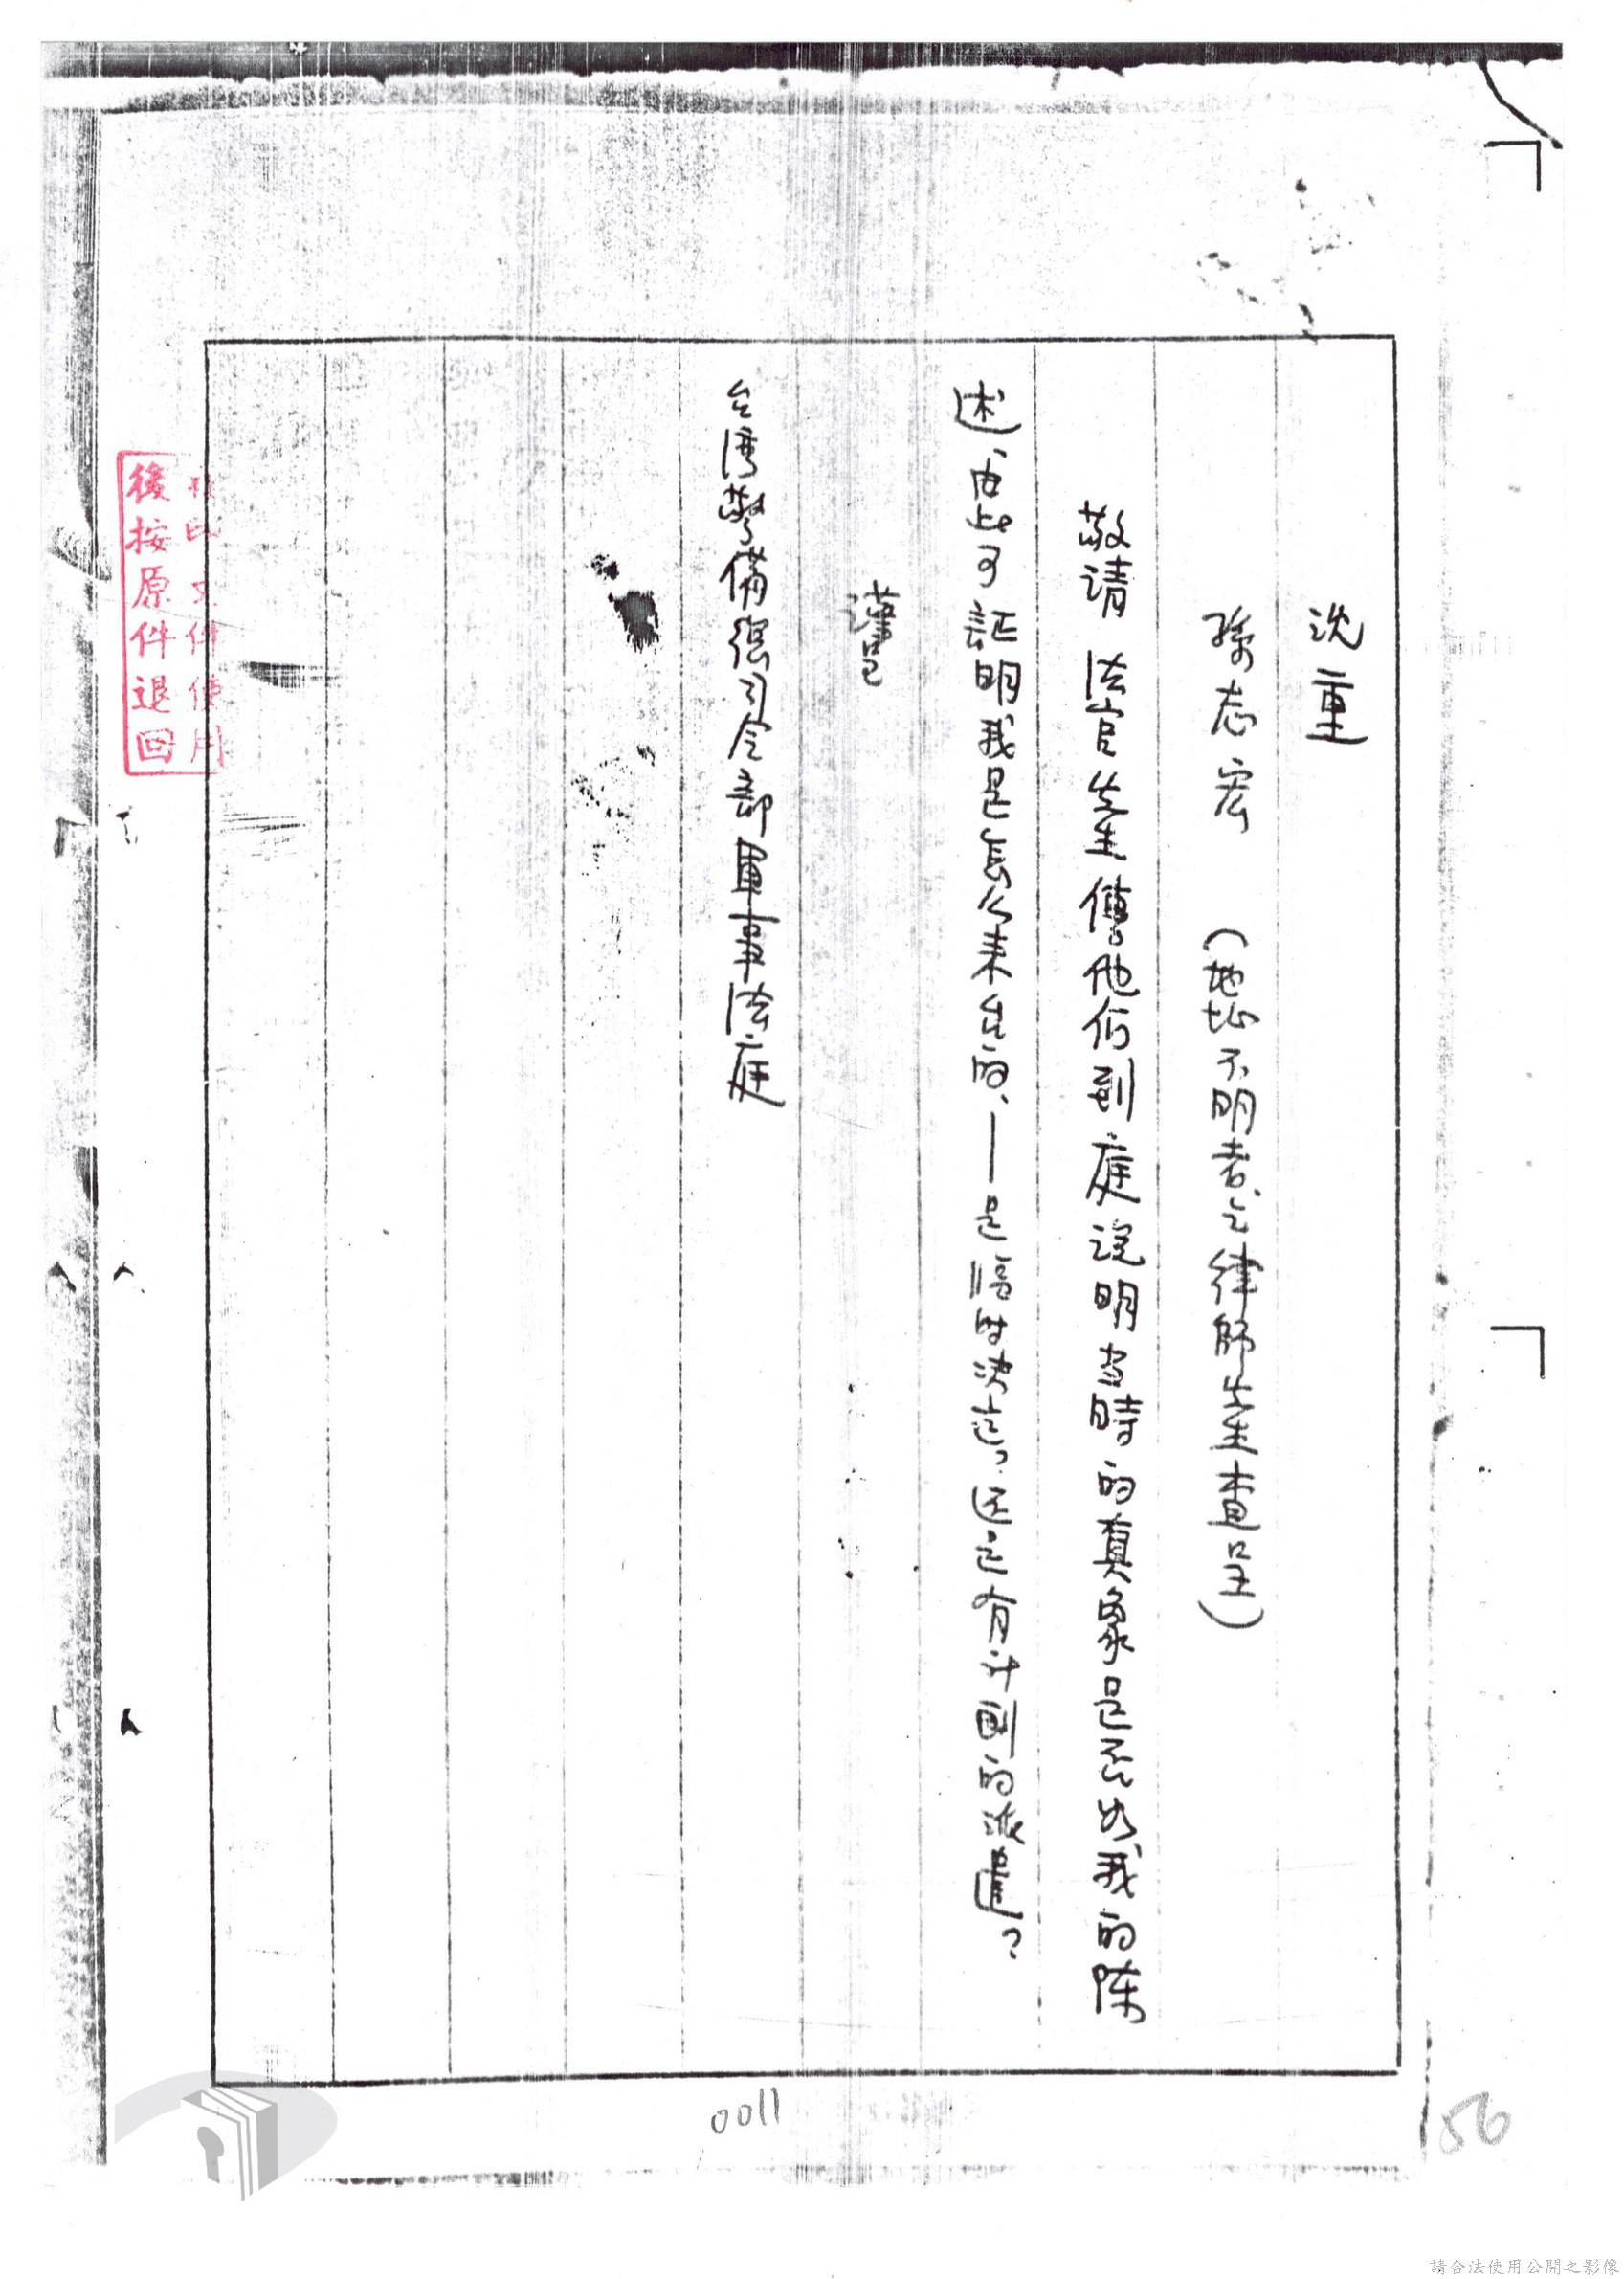 沈重
孫志宏 （地址不明者，乞律師先生查呈）
敬请 法官先生傳他们到庭說明当時的真象是否如我的陈
述，由此可証明我是怎么来台的，—是臨时决定？还是有计劃的派遣？
謹呈
台湾警備總司令部軍事法庭
文件使用
後按原件退回
0011
156
請合法使用公開之影像